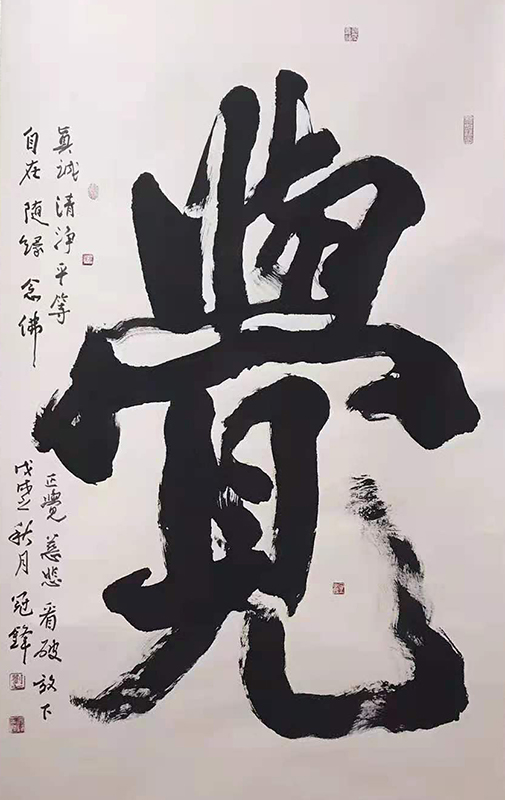 覺
真诚 清淨 平等
正覺 慈悲 看破 放下
自在 随缘 念佛
戊戌之秋月 冠鋒